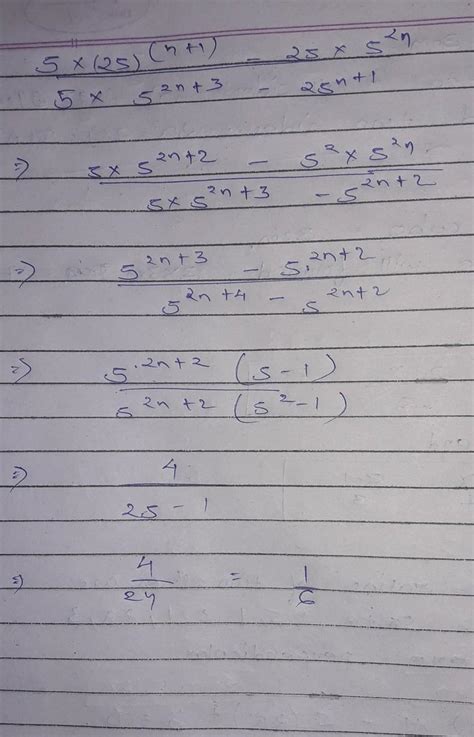 5 × (25)^(n+1) - 25 × 5^2n
5 × 5^2n+3 - 25^n+1
⇒ 5 × 5^2n+2 - 5^2 × 5^2n
5 × 5^2n+3 - 5^2n+2
⇒ 5^2n+3 - 5^2n+2
5^2n+4 - 5^2n+2
⇒ 5^2n+2 (5 - 1)
5^2n+2 (5^2 - 1)
⇒ 4
25 - 1
⇒ 4/24 = 1/6